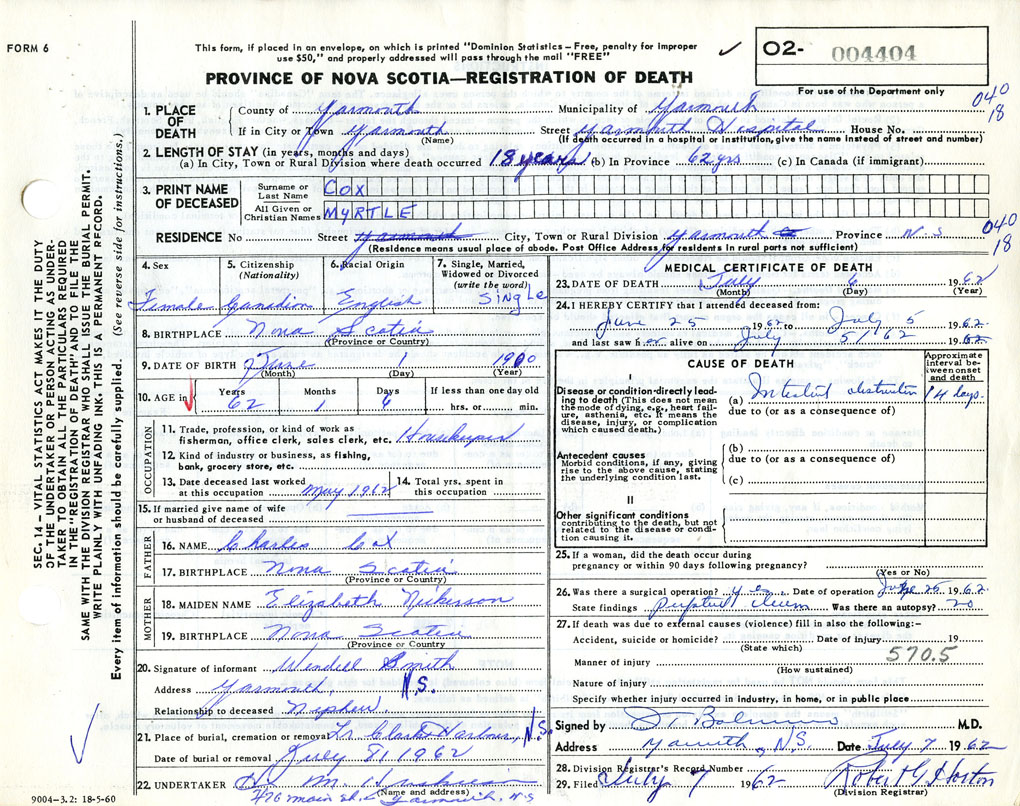 FORM 6
This form, if placed in an envelope, on which is printed "Dominion Statistics – Free, penalty for improper
use $50," and properly addressed will pass through the mail "FREE"
✓ O2- 004404
PROVINCE OF NOVA SCOTIA—REGISTRATION OF DEATH
For use of the Department only
040
18
1. PLACE OF DEATH
County of Yarmouth Municipality of Yarmouth
If in City or Town Yarmouth Street Yarmouth Hospital House No.
(Name) (If death occurred in a hospital or institution, give the name instead of street and number)
2. LENGTH OF STAY (in years, months and days)
(a) In City, Town or Rural Division where death occurred 18 years (b) In Province 62 yrs (c) In Canada (if immigrant)
3. PRINT NAME OF DECEASED
Surname or Last Name COX
All Given or Christian Names MYRTLE
RESIDENCE No Street Yarmouth City, Town or Rural Division Yarmouth Province N.S
040
18
(Residence means usual place of abode. Post Office Address for residents in rural parts not sufficient)
4. Sex Female
5. Citizenship (Nationality) Canadian
6. Racial Origin English
7. Single, Married, Widowed or Divorced (write the word) Single
8. BIRTHPLACE Nova Scotia
(Province or Country)
9. DATE OF BIRTH June 1 1900
(Month) (Day) (Year)
10. AGE in Years 62 Months 1 Days 6 If less than one day old hrs. or min.
OCCUPATION
11. Trade, profession, or kind of work as
fisherman, office clerk, sales clerk, etc. Housekeeper
12. Kind of industry or business, as fishing,
bank, grocery store, etc.
13. Date deceased last worked
at this occupation May 1962
14. Total yrs. spent in
this occupation
15. If married give name of wife
or husband of deceased
FATHER
16. NAME Charles Cox
17. BIRTHPLACE Nova Scotia
(Province or Country)
MOTHER
18. MAIDEN NAME Elizabeth Nickerson
19. BIRTHPLACE Nova Scotia
(Province or Country)
20. Signature of informant Wendell Smith
Address Yarmouth, N.S.
Relationship to deceased Nephew.
21. Place of burial, cremation or removal Clark's Harbour, N.S.
Date of burial or removal July 8, 1962
22. UNDERTAKER
(Name and address)
476 Main St. Yarmouth, N.S
9004-3.2: 18-5-60
MEDICAL CERTIFICATE OF DEATH
23. DATE OF DEATH July 6 1962
(Month) (Day) (Year)
24. I HEREBY CERTIFY that I attended deceased from:
June 25 1962 to July 5 1962
and last saw her alive on July 5/62 1962
CAUSE OF DEATH
Approximate interval between onset and death
I
Disease or condition directly leading to death (This does not mean the mode of dying, e.g., heart failure, asthenia, etc. It means the disease, injury, or complication which caused death.)
(a) Intestinal obstruction 14 days.
due to (or as a consequence of)
Antecedent causes
Morbid conditions, if any, giving rise to the above cause, stating the underlying condition last.
(b)
due to (or as a consequence of)
(c)
II
Other significant conditions
contributing to the death, but not related to the disease or condition causing it.
25. If a woman, did the death occur during
pregnancy or within 90 days following pregnancy?
(Yes or No)
26. Was there a surgical operation? yes Date of operation June 25 1962
State findings ileum Was there an autopsy? no
27. If death was due to external causes (violence) fill in also the following:–
Accident, suicide or homicide? Date of injury 19
(State which) 570.5
Manner of injury
(How sustained)
Nature of injury
Specify whether injury occurred in industry, in home, or in public place
Signed by M.D.
Address Yarmouth, N.S. Date July 7 1962
28. Division Registrar's Record Number
29. Filed July 7 1962 Robert G. Horton
(Division Registrar)
SEC. 14 – VITAL STATISTICS ACT MAKES IT THE DUTY
OF THE UNDERTAKER OR PERSON ACTING AS UNDERTAKER
TO OBTAIN ALL THE PARTICULARS REQUIRED
IN THE "REGISTRATION OF DEATH" AND TO FILE THE
SAME WITH THE DIVISION REGISTRAR WHO SHALL ISSUE THE BURIAL PERMIT.
WRITE PLAINLY WITH UNFADING INK. THIS IS A PERMANENT RECORD.
Every item of information should be carefully supplied. (See reverse side for instructions.)